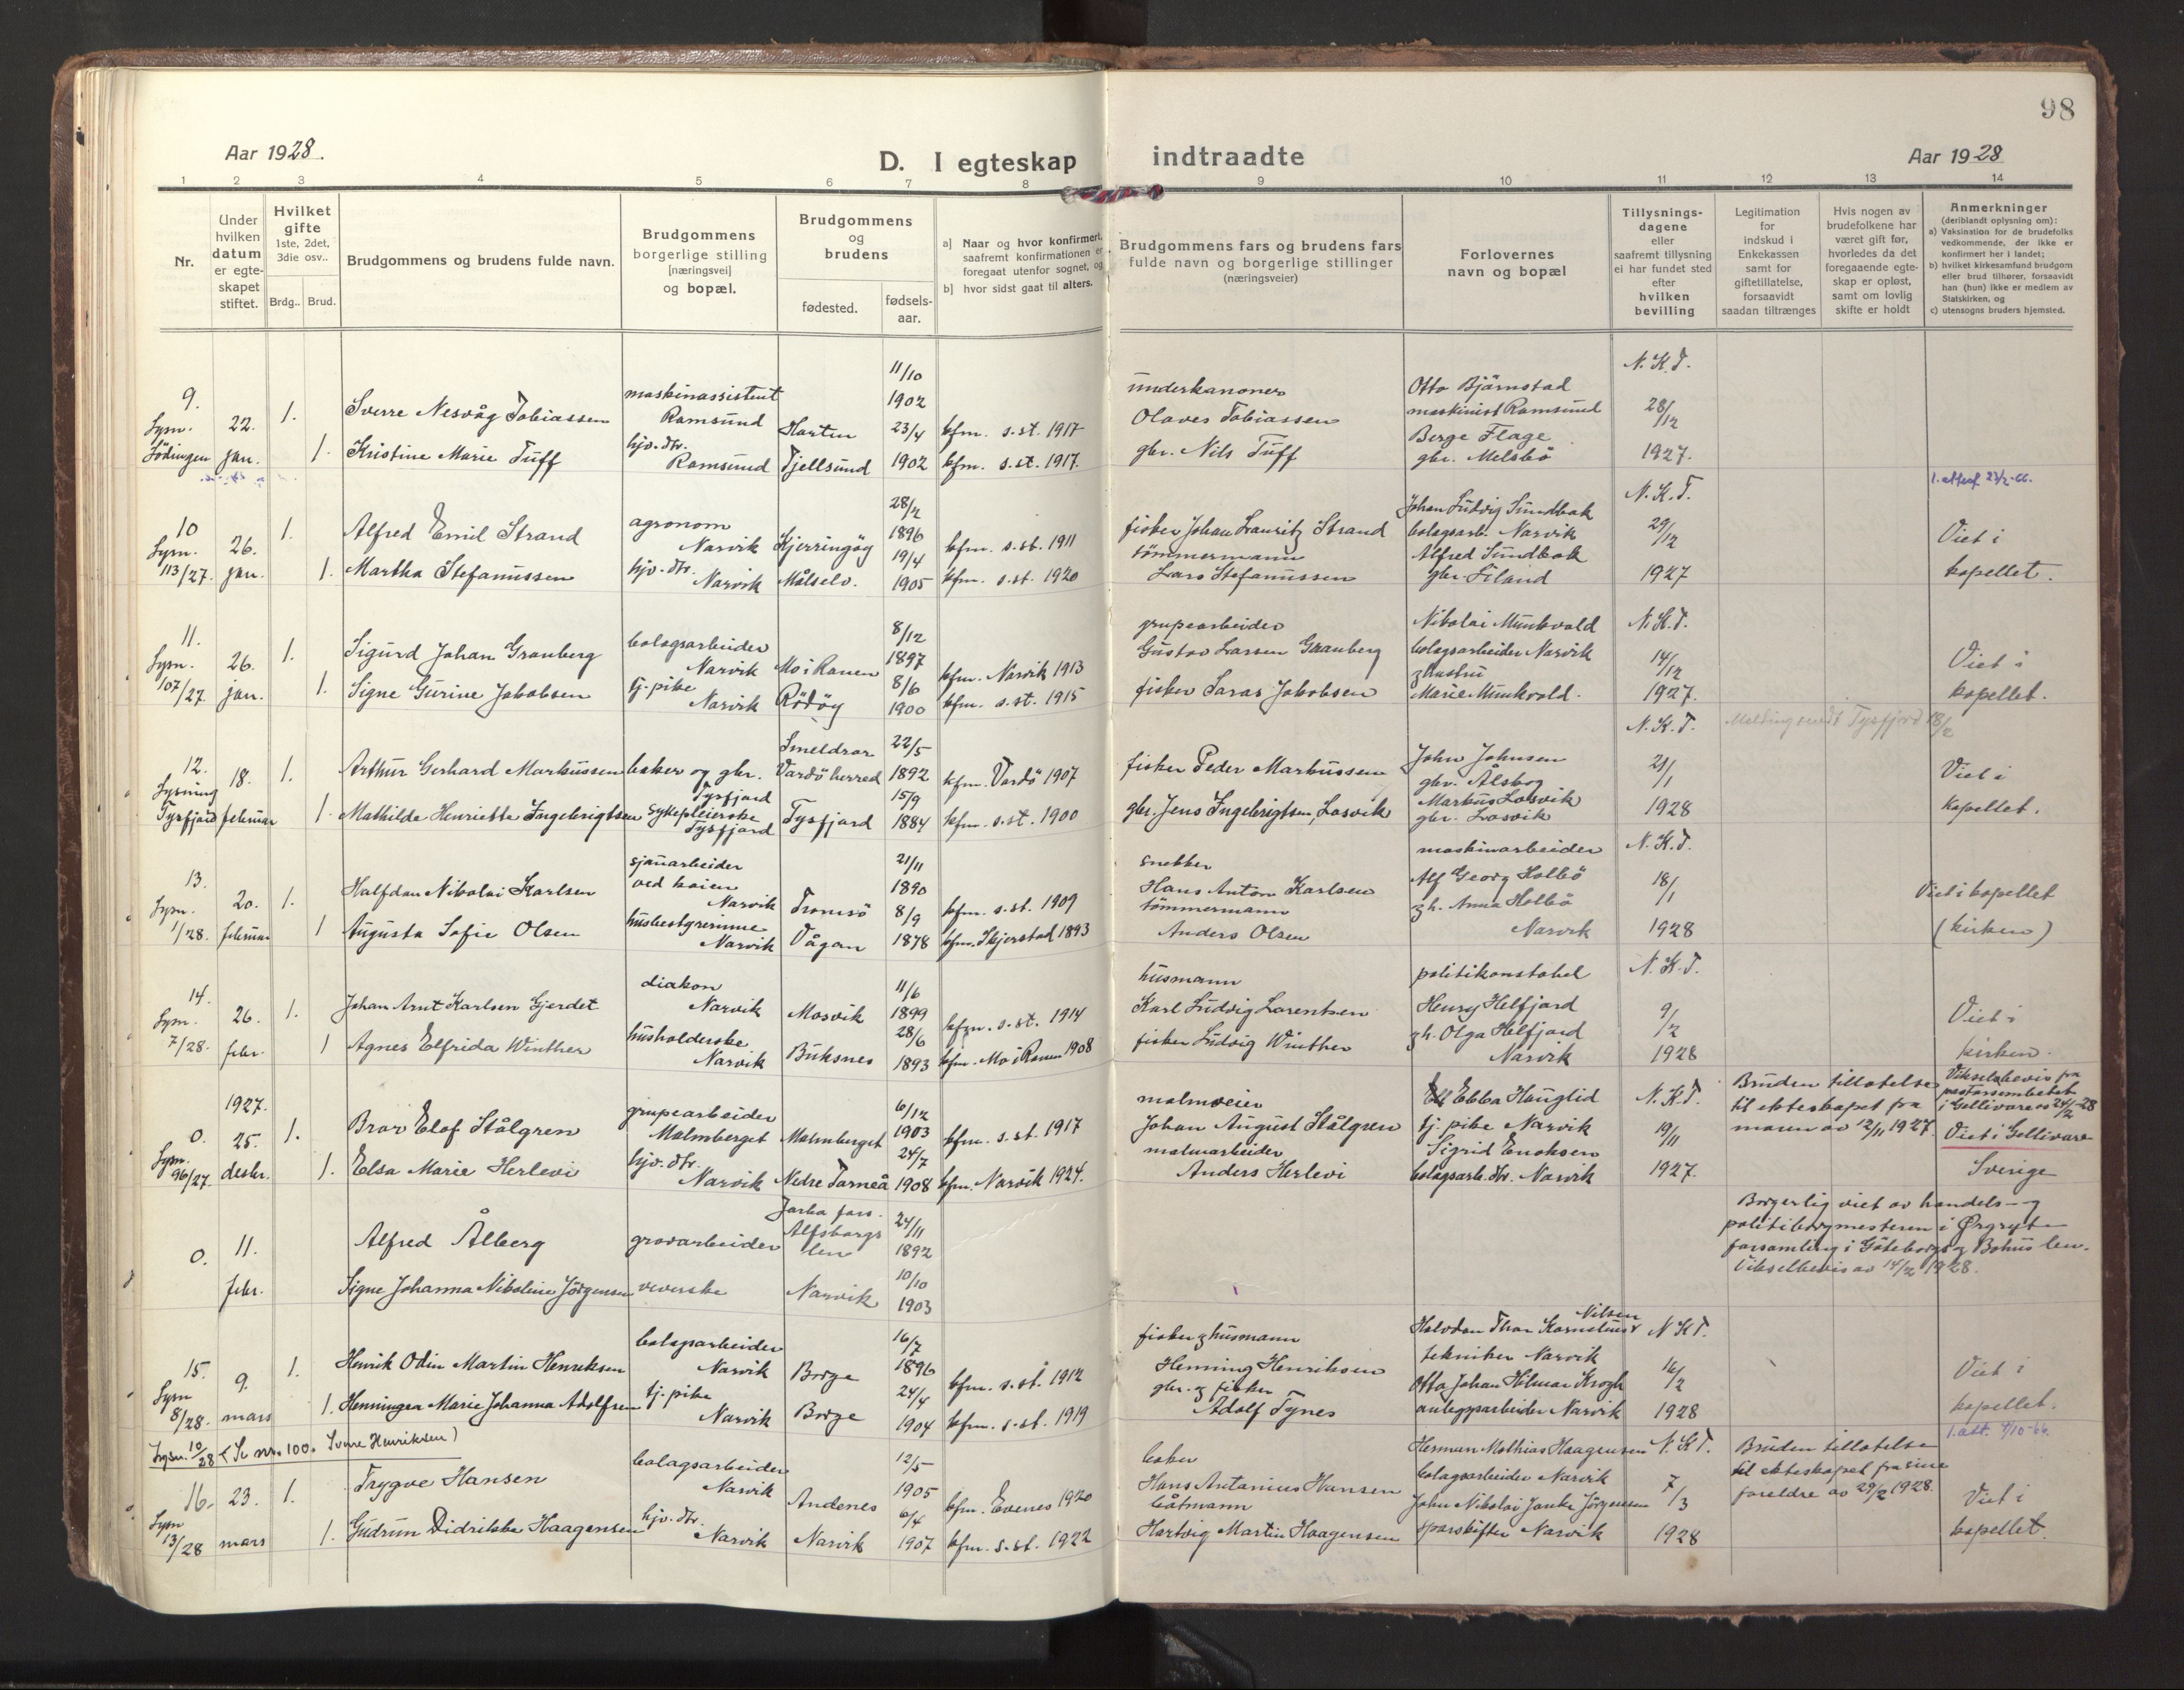 98
Aar 1928.
D. I egteskap indtraadte
Aar 1928
1 2 3 4 5 6 7 8 9 10 11 12 13 14
Nr.
Under hvilken datum er egte-skapet stiftet.
Hvilket gifte
1ste, 2det, 3die osv..
Brdg.. Brud.
Brudgommens og brudens fulde navn.
Brudgommens borgerlige stilling [næringsvei] og bopæl.
Brudgommens og brudens
fødested.
fødsels-aar.
a] Naar og hvor konfirmert, saafremt konfirmationen er foregaat utenfor sognet, og
b] hvor sidst gaat til alters.
Brudgommens fars og brudens fars fulde navn og borgerlige stillinger (næringsveier)
Forlovernes navn og bopæl
Tillysnings-dagene eller saafremt tillysning ei har fundet sted efter hvilken bevilling
Legitimation for indskud i Enkekassen samt for giftetillatelse, forsaavidt saadan tiltrænges
Hvis nogen av brudefolkene har været gift før, hvorledes da det foregaaende egte-skap er opløst, samt om lovlig skifte er holdt
Anmerkninger
(deriblandt oplysning om):
a) Vaksination for de brudefolks vedkommende, der ikke er konfirmert her i landet;
b) hvilket kirkesamfund brudgom eller brud tilhører, forsaavidt han (hun) ikke er medlem av Statskirken, og
c) utensogns bruders hjemsted.
9. Lysn. Lödingen
22. jan.
1. Sverre Nesvåg Tobiassen
maskinassistent Ramsund
11/10 1902
kfm. s.st. 1917
underkanoner Olaves Tobiassen
Otto Bjårnstad maskinist Ramsund
N.K.T. 28/12 1927.
1. Kristine Marie Tuff
hjv. dtr. Ramsund
Tjellsund
23/4 1902
kfm. s.st. 1917.
gbr. Nils Tuff
Berge Flage gbr. Melsbö
1. attest 23/2-66.
10 Lysn. 113/27.
26. jan.
1. Alfred Emil Strand
agronom Narvik
Kjerringöy
28/2 1896
kfm. s.st. 1911
fisker Johan Lauritz Strand
Johan Ludvig Sundbak bolagsarb. Narvik
N.K.T. 29/12 1927
Viet i kapellet.
1. Martha Stefanussen
hjv. dtr. Narvik
Målselv.
19/4 1905
kfm. s.st. 1920
tömmermann Lars Stefanussen
Alfred Sundbak gbr.
11. Lysn. 107/27.
26. jan.
1. Sigurd Johan Granberg
bolagsarbeider Narvik
Mo i Ranen
8/12 1897
kfm. Narvik 1913
grupearbeider Gustav Larsen Granberg
Nikolai Munkvold bolagsarbeider Narvik
N.K.T. 14/12 1927.
Viet i kapellet.
1. Signe Gurine Jakobsen
tj. pike Narvik
Rödöy
8/6 1900
kfm. s.st. 1915
fisker Saras Jakobsen
og hustru Marie Munkvold.
Melding sendt Tysfjord 18/2
12. Lysning Tysfjord
18. februar
1. Arthur Gerhard Markussen
baker og gbr. Tysfjord
Smeldror Vardö herred
22/5 1892
kfm. Vardö 1907
fisker Peder Markussen
John Johnsen gbr. Ålsbog
N.K.T. 21/1 1928
Viet i kapellet.
1. Mathilde Henriette Ingebrigtsen
sykepleierske Tysfjord
Tysfjord
15/9 1884
kfm. s.st. 1900
gbr. Jens Ingebrigtsen, Losvik
Markus Losvik gbr. Losvik
13. Lysn. 1/28.
20. februar
1. Halfdan Nikolai Karlsen
sjauarbeider ved kaien Narvik
Tromsö
21/11 1890
kfm. s.st. 1909
snekker Hans Anton Karlsen
maskinarbeider Alf Georg Holbö
N.K.T. 18/1 1928
Viet i kapellet (kirken)
1 Augusta Sofie Olsen
husbestyrerinne Narvik
Vågan
8/9 1878
kfm. Skjerstad 1893
tömmermann Anders Olsen
og h. Anna Holbö Narvik
14. Lysn. 7/28.
26. febr.
1. Johan Arnt Karlsen Gjerdet
diakon Narvik
Mosvik
11/6 1899
kfm. s.st. 1914
husmann Karl Ludvig Lorentsen
politikonstabel Henry Helfjord
N.K.T. 9/2 1928
Viet i kirken.
1 Agnes Elfrida Winther
husholderske Narvik
Buksnes
28/6 1893
kfm. Mo i Ranen 1908
fisker Ludvig Winther
og h. Olga Helfjord Narvik
1927.
0. Lysn. 96/27.
25. desbr.
1. Bror Elof Stålgren
grupearbeider Malmberget
Malmberget
6/12 1903
kfm. s.st. 1917
malmveier Johan August Stålgren
Ebba Hauglid tj. pike Narvik
N.K.T. 19/11 1927.
Bruden tillatelse til ekteskapet fra moren av 12/11 1927.
Vikselsbevis fra pastorsembetet i Gellivare av 24/2-28
Viet i Gellivare Sverige
1. Elsa Marie Herlevi
hjv. dtr. Narvik
Nedre Torneå
24/7 1908
kfm. Narvik 1924.
malmarbeider Anders Herlevi
Sigrid Enoksen bolagsarb. dtr. Narvik
0.
11. febr.
Alfred Ålberg
grovarbeider
Alfsborgs len
24/11 1892
Borgerlig viet av handels- og politiborgmesteren i Ørgryte forsamling i Göteborgs og Bohus len.
Vikselbevis av 14/2 1928.
Signe Johanna Nikoline Jörgensen
veverske
Narvik
10/10 1903
15. Lysn 8/28.
9. mars
1. Henrik Odin Martin Henriksen
bolagsarbeider Narvik
Borge
16/7 1896
kfm. s.st. 1912
fisker og husmann Henning Henriksen
Halvdan Thor Kornelius Nilsen tekniker Narvik
N.K.T. 16/2 1928
Viet i kapellet.
1. Henningea Marie Johanna Adolfsen
tj. pike Narvik
Borge
24/4 1904
kfm. s.st. 1919
gbr. og fisker Adolf Tynes
Otto Johan Hilmar Krogh anleggsarbeider Narvik
1. att. 4/10-66.
Lysn. 10/28 (Se nr. 100. Sverre Henriksen)
16. Lysn 13/28
23. mars
1. Trygve Hansen
bolagsarbeider Narvik
Andenes
12/5 1905
kfm. Evenes 1920
baker Hans Antonius Hansen
Herman Mathias Haagensen bolagsarbeider Narvik
N.K.T. 7/3 1928
Bruden tillatelse til ekteskapet fra sine foreldre av 29/2 1928.
Viet i kapellet.
1. Gudrun Didrikke Haagensen
hjv. dtr. Narvik
Narvik
6/4 1907
kfm. s.st. 1922
båtmann Hartvig Martin Haagensen
John Nikolai Janke Jörgensen sporskifter Narvik